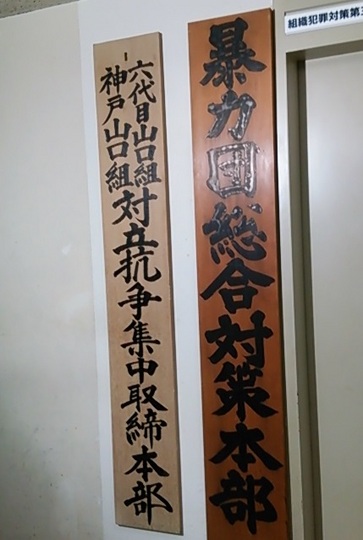 組織犯罪対策第
暴力団総合対策本部
六代目山口組
神戸山口組
対立抗争集中取締本部